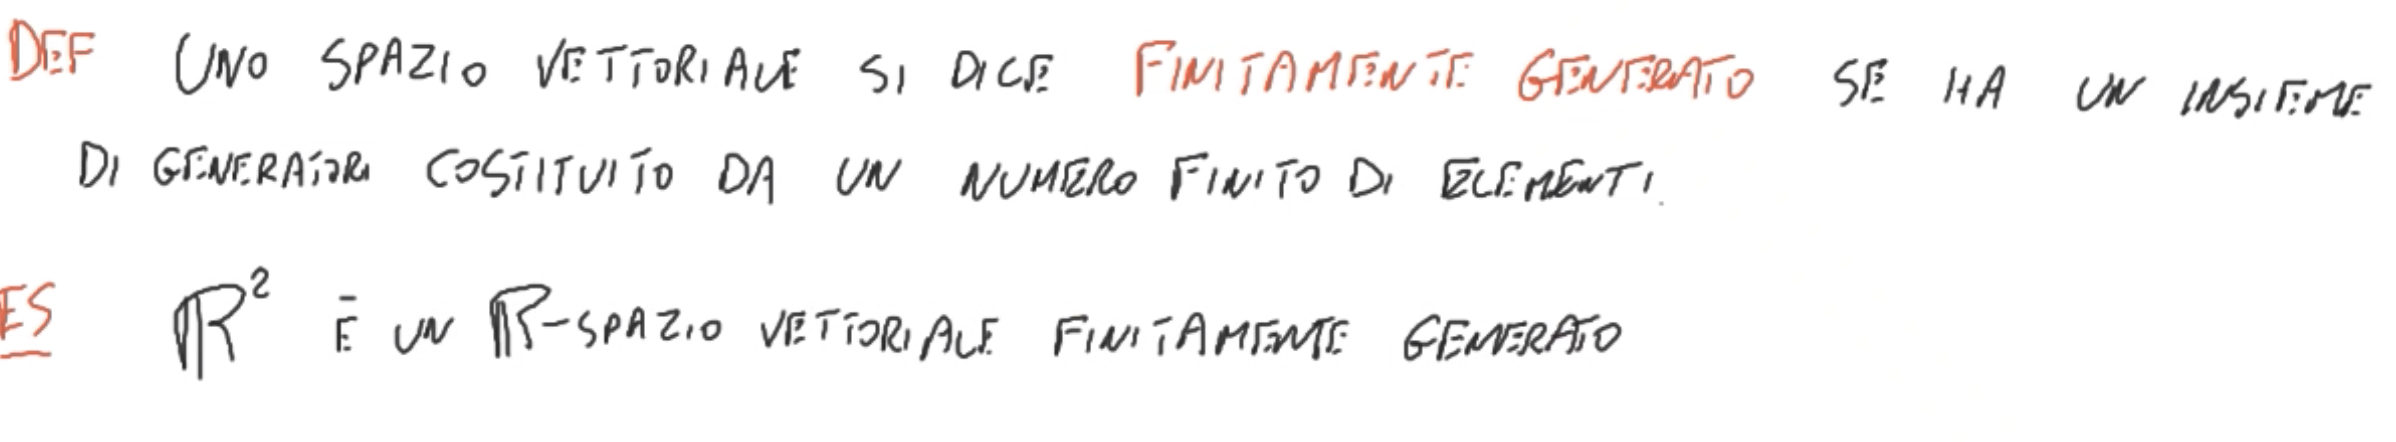 DEF UNO SPAZIO VETTORIALE SI DICE FINITAMENTE GENERATO SE HA UN INSIEME
DI GENERATORI COSTITUITO DA UN NUMERO FINITO DI ELEMENTI.
ES ℝ² È UN ℝ-SPAZIO VETTORIALE FINITAMENTE GENERATO